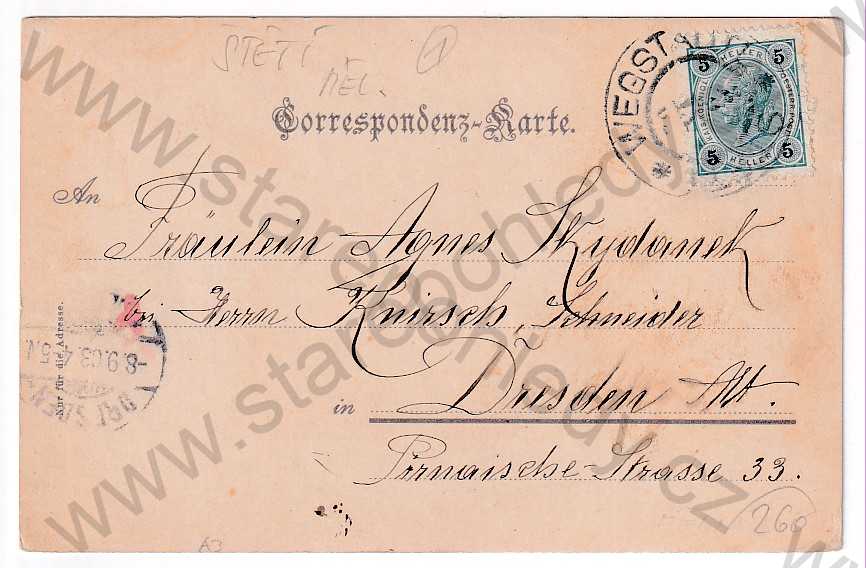 ŠTĚTÍ
MĚL.
1
Correspondenz-Karte.
WEGSTÄ
5 HELLER 5
5 HELLER 5
An
Fräulein Agnes Skydanek
bei Herrn Knirsch, Schneider
in Dresden Alt.
Pirnaische-Strasse 33.
Nur für die Adresse.
-8.9.03.4-5
DRESDEN
260
A3
www.starepohledy.cz